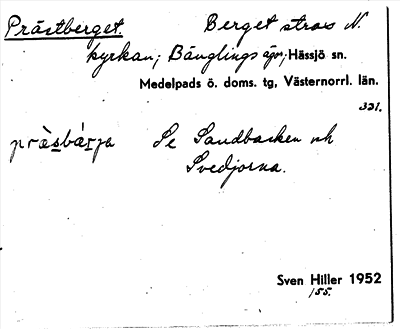 Prästberget. Berget strax N.
kyrkan; Bänglings ägor; Hässjö sn.
Medelpads ö. doms. tg, Västernorrl. län.
321.
prὰsbárja Se Sandbacken och
Svedjorna.
Sven Hiller 1952
155.